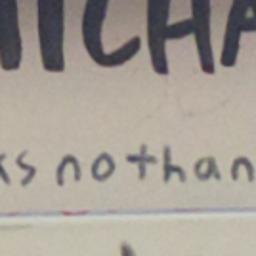 ICHA
ks nothan